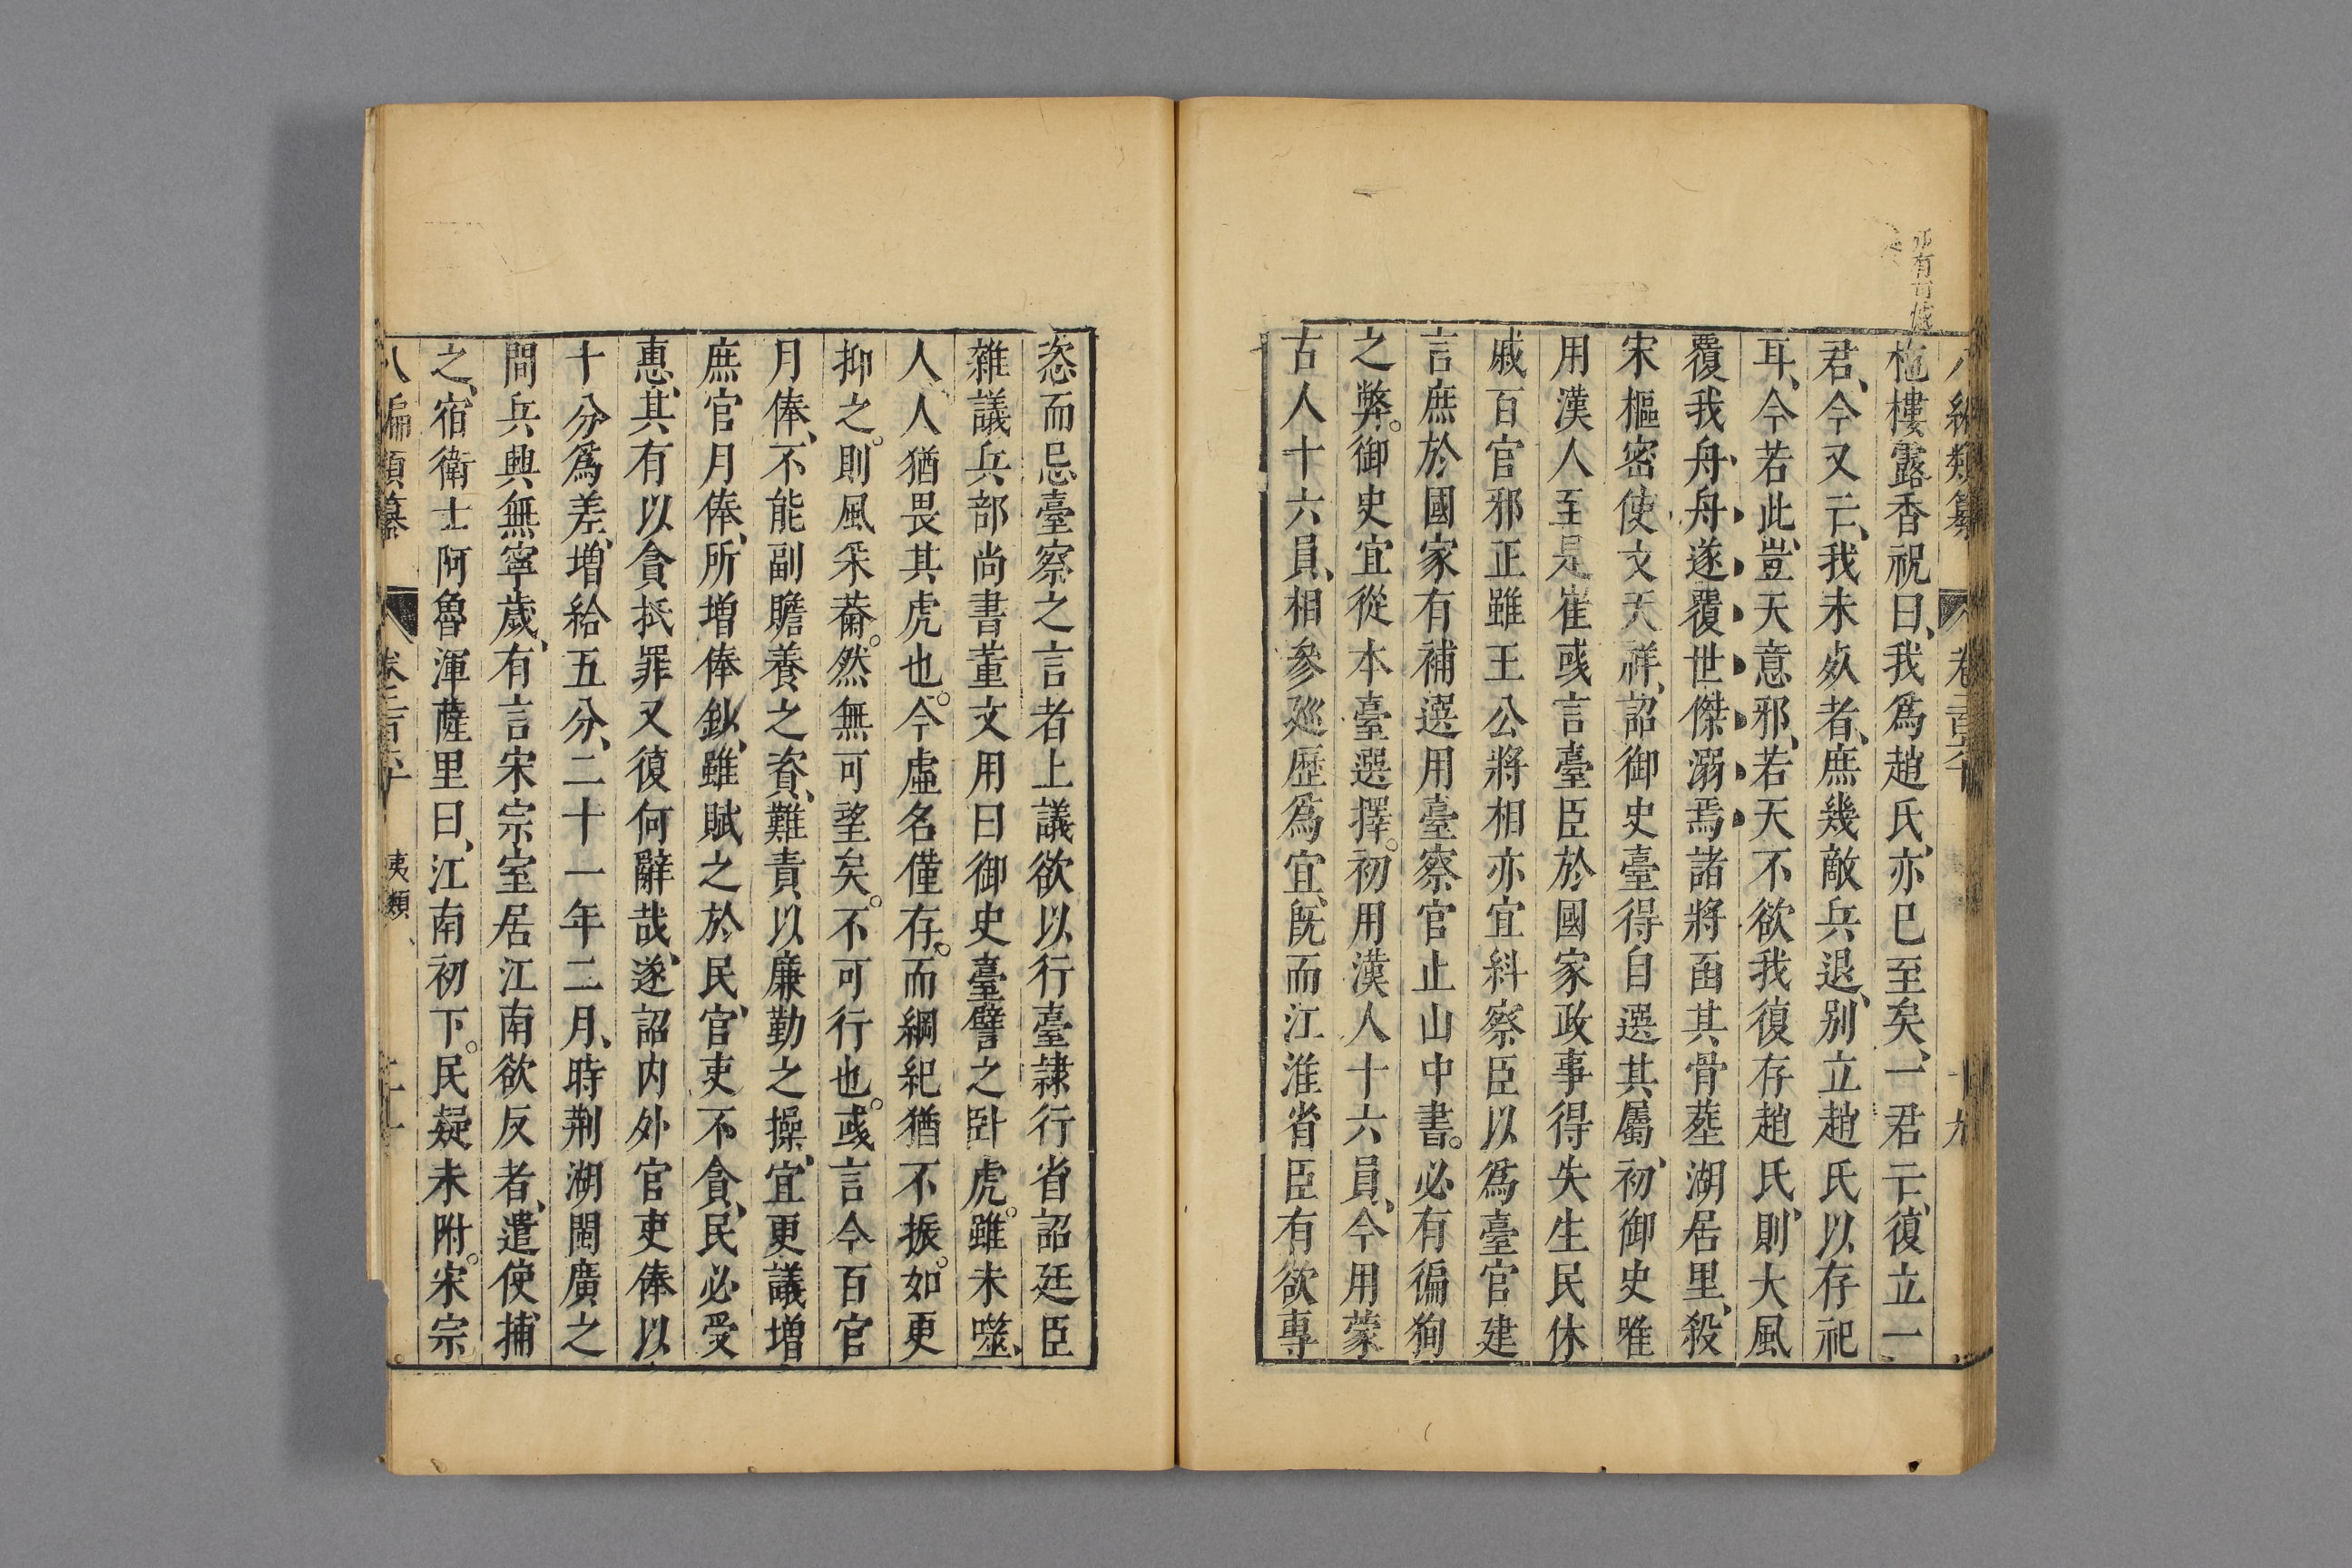 柂樓露香祝曰、我爲趙氏、亦已至矣、一君亡、復立一
君、今又亡、我未歿者、庶幾敵兵退、别立趙氏以存祀
耳、今若此、豈天意邪、若天不欲我復存趙氏、則大風
覆我舟、舟遂覆世傑溺焉諸將函其骨葬湖居里、殺
宋樞密使文天祥、詔御史臺得自選其屬、初御史雅
用漢人至是崔彧言臺臣於國家政事得失生民休
戚百官邪正雖王公將相亦宜糾察臣以爲臺官建
言庶於國家有補選用臺察官止由中書。必有徧狥
之弊。御史宜從本臺選擇。初用漢人十六員、今用蒙
古人十六員、相參廵歷爲宜、旣而江淮省臣有欲專
恣而忌臺察之言者上議欲以行臺隷行省詔廷臣
雜議兵部尚書董文用曰御史臺譬之卧虎。雖未噬、
人、人猶畏其虎也。今虛名僅存。而綱紀猶不振。如更
抑之。則風采薾。然無可望矣。不可行也。彧言今百官
月俸、不能副贍養之資、難責以廉勤之操、宜更議增
庶官月俸、所增俸鈔、雖賦之於民、官吏不貪、民必受
惠、其有以貪抵罪又復何辭哉、遂詔内外官吏俸以
十分爲差、增給五分、二十一年二月、時荆湖閩廣之
間兵興無寧歲、有言宋宗室居江南欲反者、遣使捕
之、宿衛士阿魯渾薩里曰、江南初下。民疑未附。宋宗
八編類纂 卷二百六十 夷類